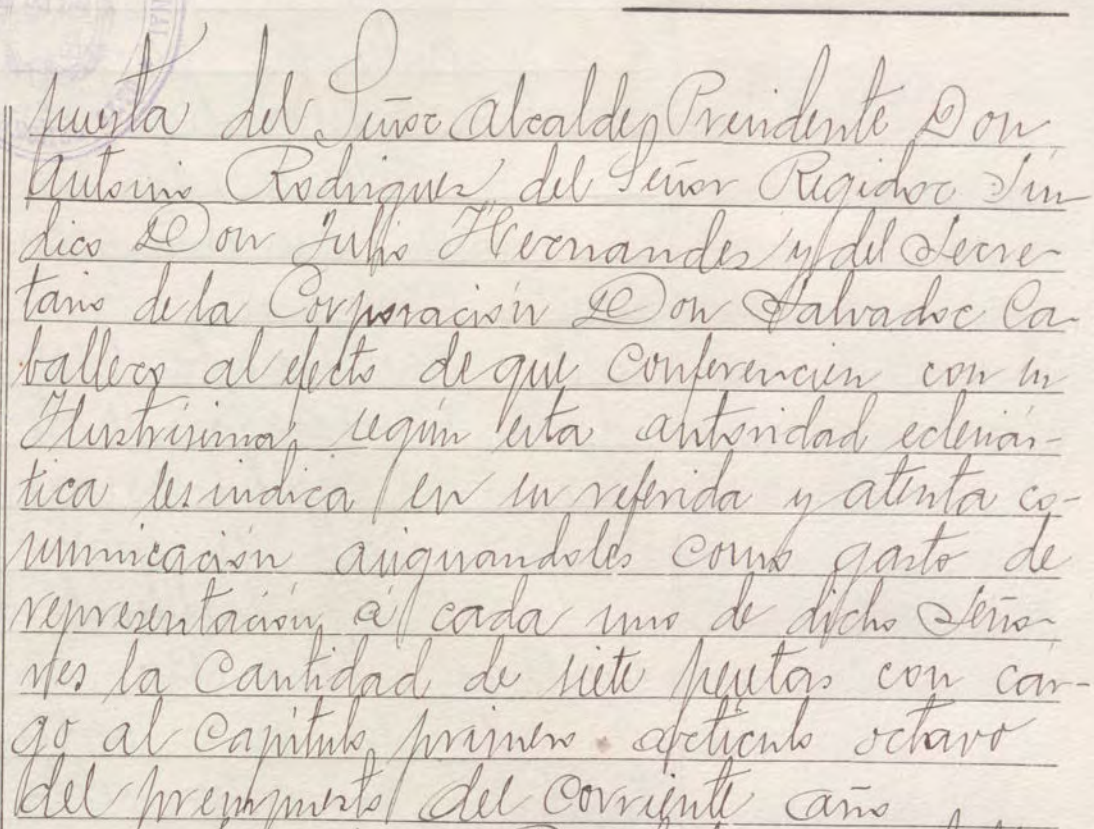 puesta del Señor Alcalde, Presidente Don
Antonio Rodriguez, del Señor Regidor Sin
dico Don Julio Hernandes y del Secre-
tario de la Corporación Don Salvador Ca-
ballero al efecto de que conferencien con su
Ilustrisima, según esta autoridad eclesiás-
tica les indica en su referida y atenta co-
municación asignandoles como gasto de
representación á cada uno de dicho Seño-
res la cantidad de siete pesetas con car-
go al Capitulo primero articulo octavo
del presupuesto del corriente año